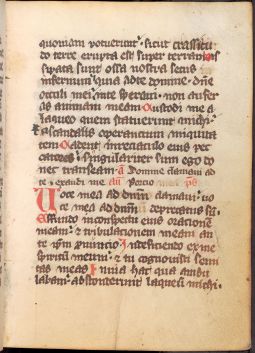 quoniam potuerunt. sicut crassitu
do terre erupta est super terram dis
sipata sunt ossa nostra secus
infernum quia ad te domine dne
oculi mei in te speravi non aufer
as animam meam Custodi me a
laqueo quem statuerunt michi
et a scandalis operantium iniquita
tem Cadent in reciaculo eius pec
catores singulariter sum ego do
nec transeam Domine clamavi ad
te exaudi me Porcio
Uoce mea ad dnm clamavi. uo
ce mea ad dnm deprecatus su
Effundo in conspectu eius orationem
meam et tribulationem meam an
te ipm pnuncio In deficiendo ex me
spiritum meum et tu cognovisti semi
tas meas In via hac qua ambu
labam absconderunt laqueum michi.